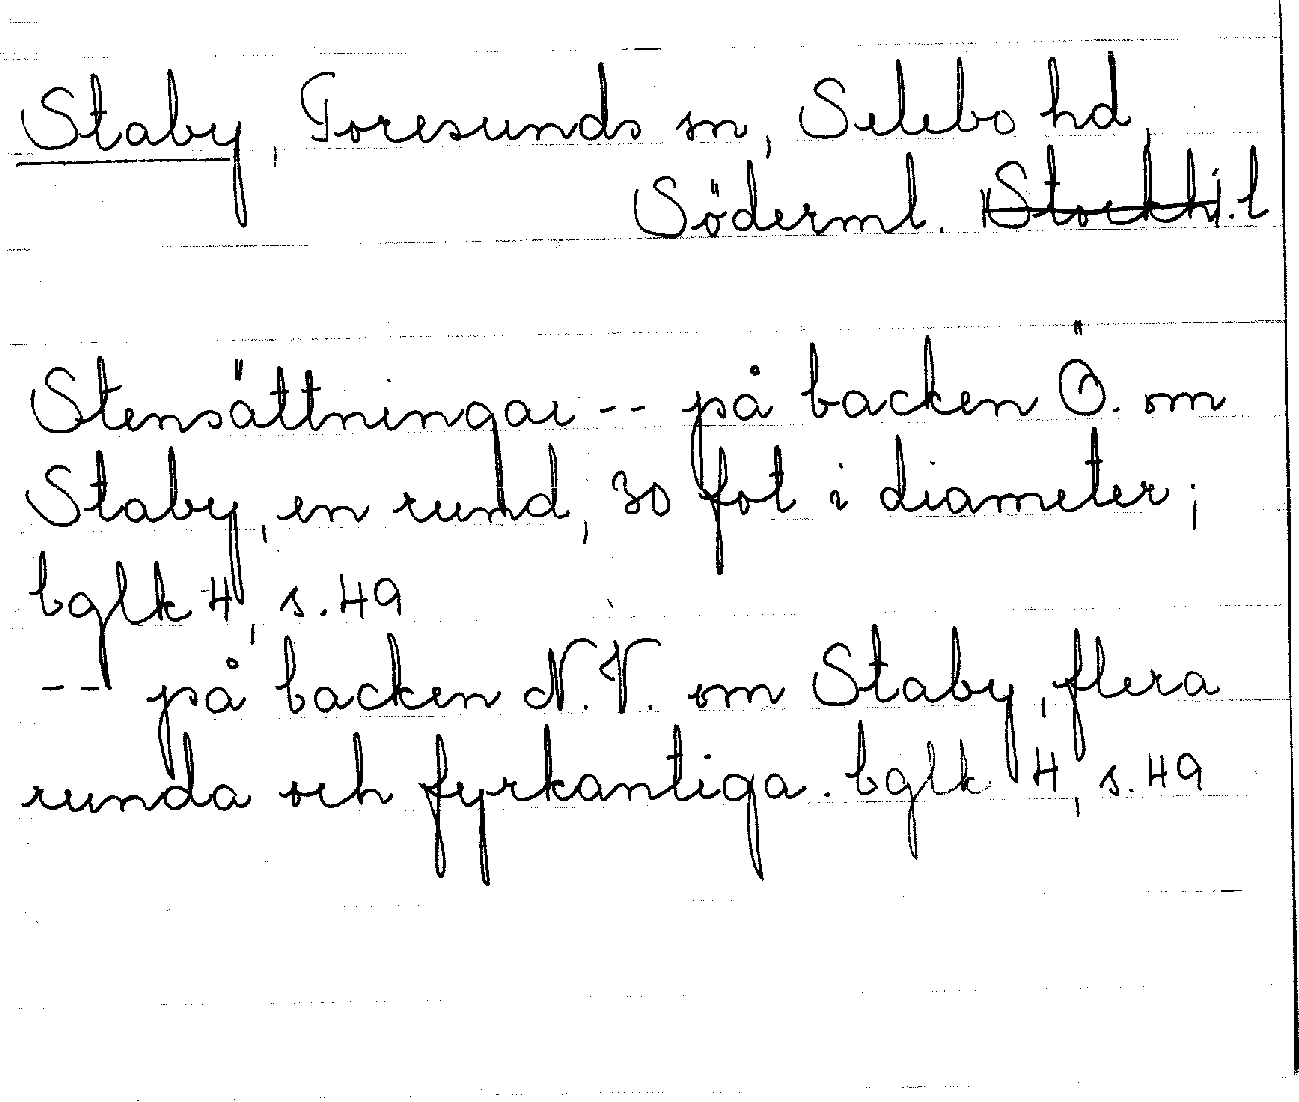 Staby, Toresunds sn, Selebo hd,
Söderml. (Stockh). l
Stensättningar -- på backen Ö. om
Staby, en rund, 30 fot i diameter;
bglk 4, s. 49
-- på backen N.V. om Staby, flera
runda och fyrkantiga. bglk 4, s. 49